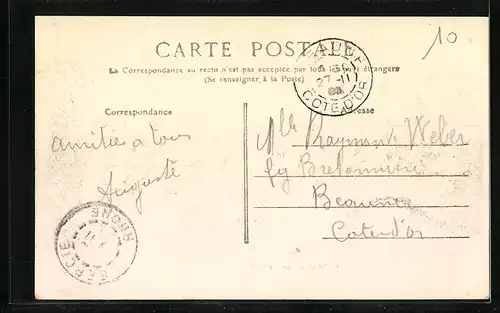 10
CARTE POSTALE
La Correspondance au recto n'est pas acceptée par tous les pays étrangers
(Se renseigner à la Poste)
CÔTE-D'OR
Correspondance
Adresse
amitiés a tous
Auguste
Mlle Raymonde Weber
fg Bretonnière
Beaune
Cote d'or
RHONE